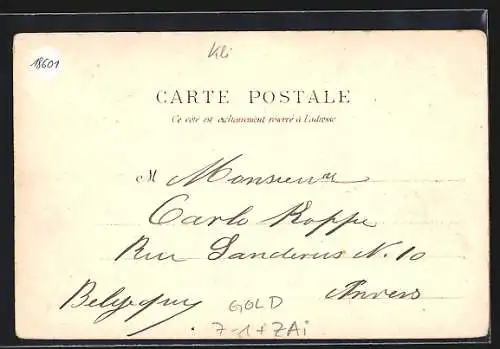 Kli
18601
CARTE POSTALE
Ce côté est exclusivement réservé à l'adresse
M Monsieur
Carlo Koppe
Rue Sanderus N. 10
Anvers
Belgique
GOLD
7-1+ZAi